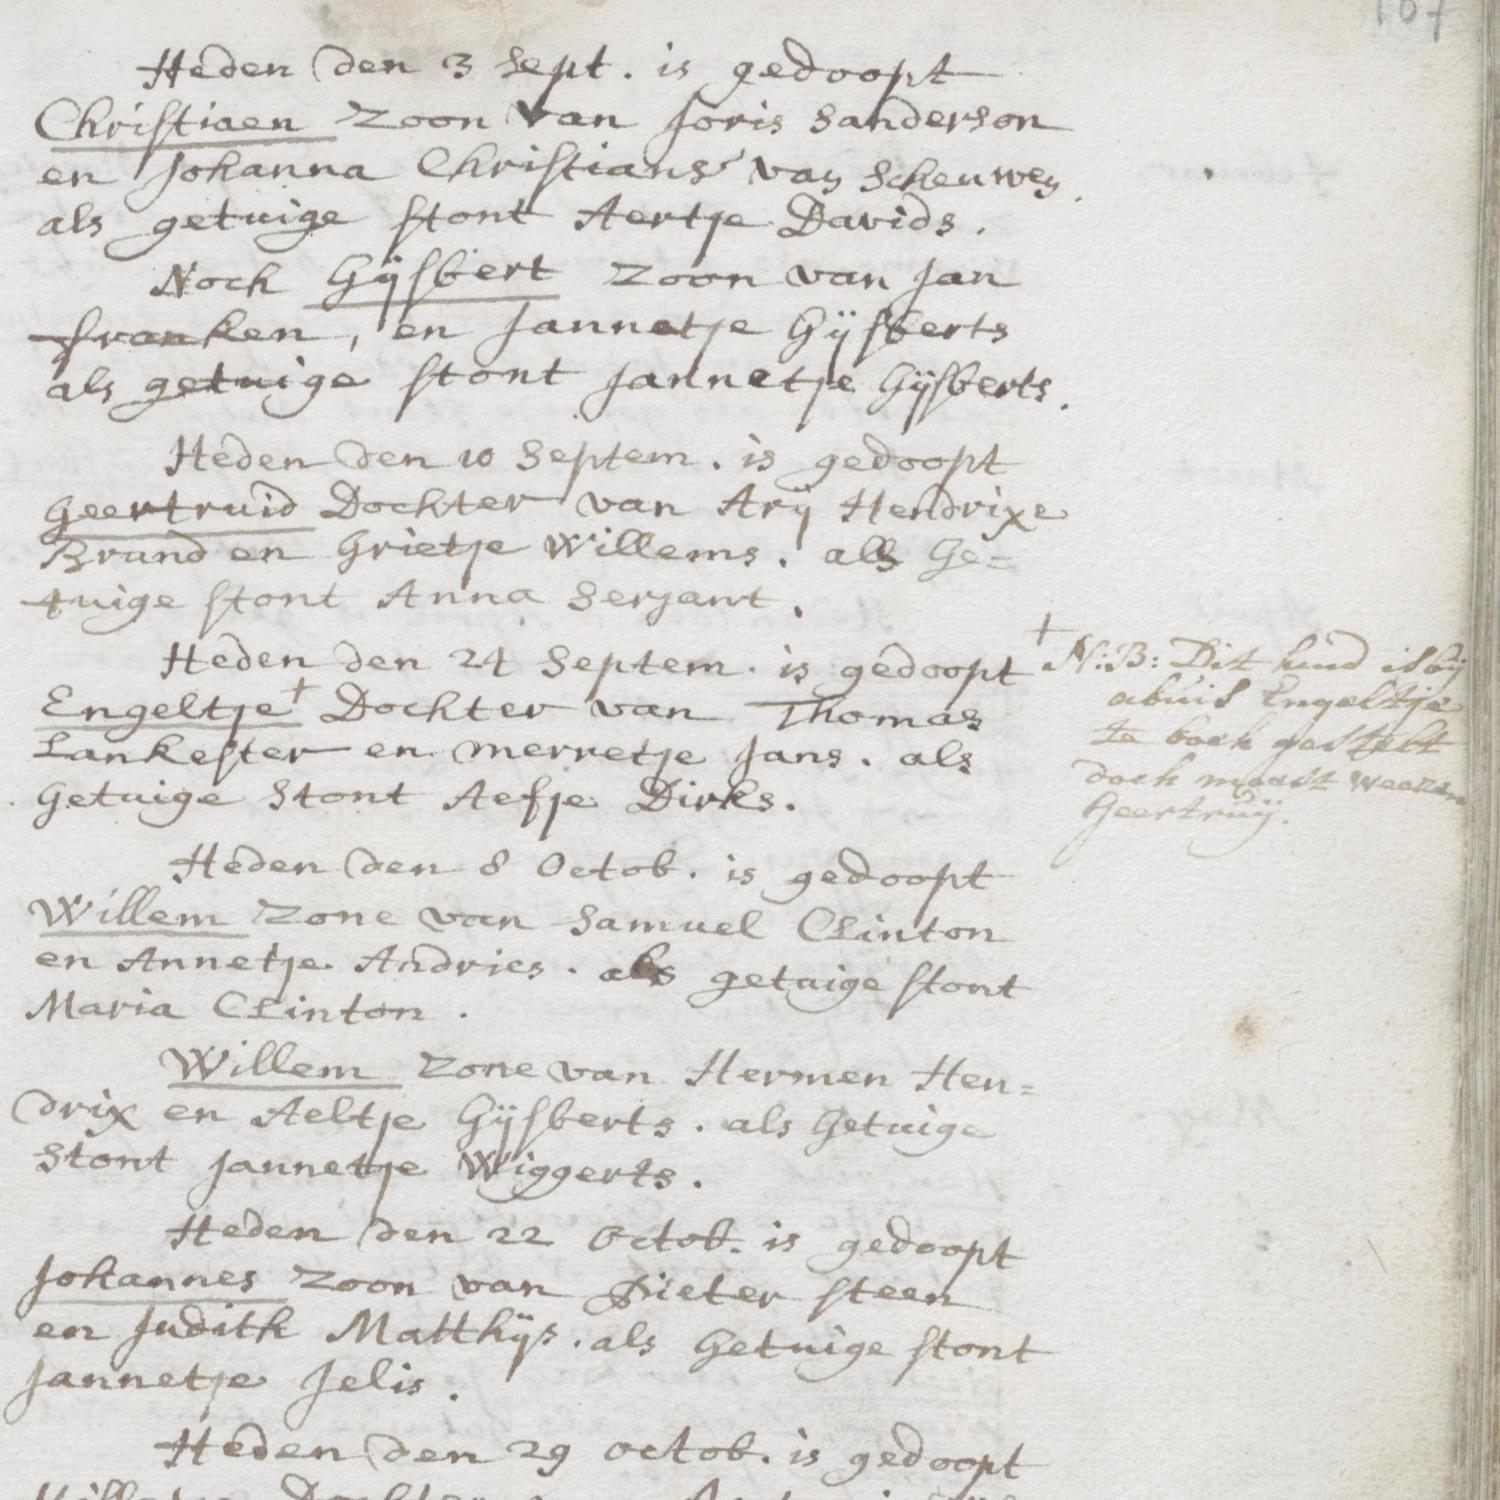 167
Heden den 3 Sept. is gedoopt
Christiaen Zoon van Joris Sanderson
en Johanna Christians van Scheuwen.
als getuige stont Aertje Davids.
Noch Gijsbert Zoon van Jan
franken, en Jannetje Gijsberts
als getuige stont Jannetje Gijsberts.
Heden den 10 Septem. is gedoopt
Geertruid Dochter van Arij Hendrixe
Brand en Grietje Willems. als Ge=
tuige stont Anna Serjant.
Heden den 24 Septem. is gedoopt
Engeltje† Dochter van Thomas
Lankester en merretje Jans. als
Getuige Stont Aefje Dirks.
† N:B: Dit kind is bij
abuis Engeltje
te boek gestelt
doch moest weezen
Geertruij.
Heden den 8 Octob. is gedoopt
Willem Zone van Samuel Clinton
en Annetje Andries. als getuige stont
Maria Clinton.
Willem Zone van Hermen Hen=
drix en Aeltje Gijsberts. als Getuige
Stont Jannetje Wiggerts.
Heden den 22 Octob. is gedoopt
Johannes Zoon van Pieter Steen
en Judith Matthijs. als Getuige stont
Jannetje Jelis.
Heden den 29 octob. is gedoopt